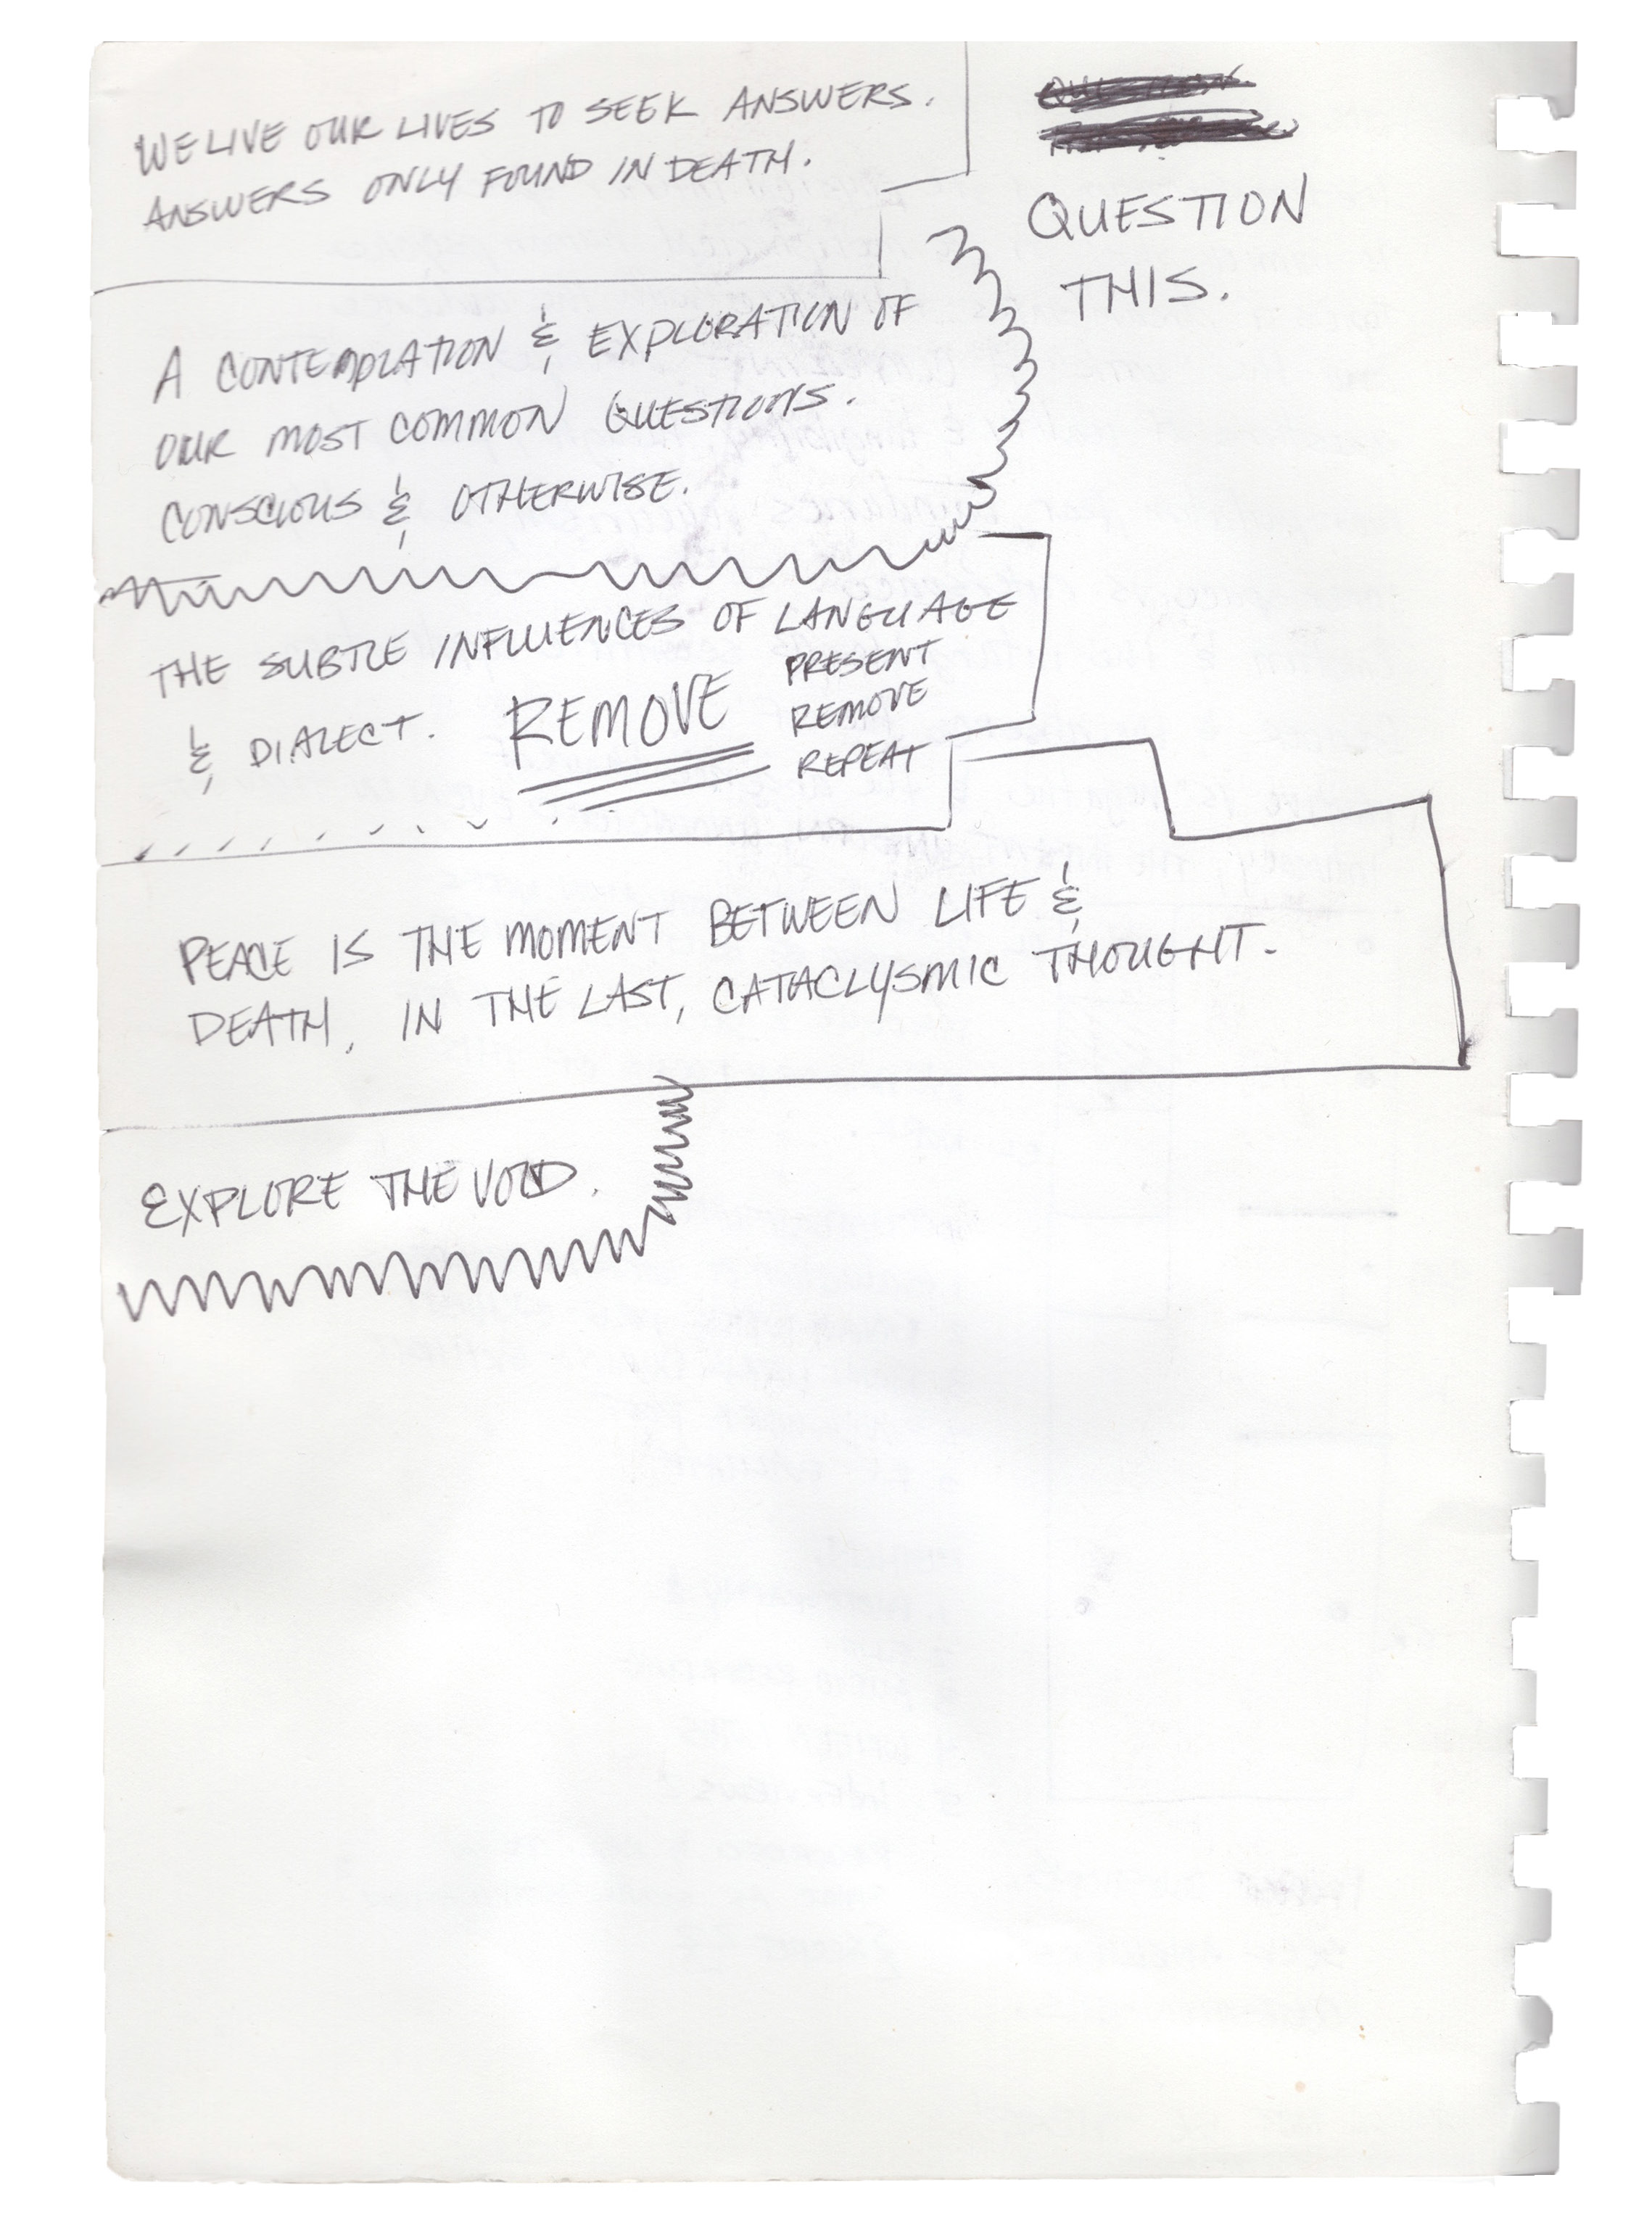 WE LIVE OUR LIVES TO SEEK ANSWERS.
ANSWERS ONLY FOUND IN DEATH.
QUESTION
THIS.
A CONTEMPLATION & EXPLORATION OF
OUR MOST COMMON QUESTIONS.
CONSCIOUS & OTHERWISE.
THE SUBTLE INFLUENCES OF LANGUAGE
& DIALECT.
REMOVE
PRESENT
REMOVE
REPEAT
PEACE IS THE MOMENT BETWEEN LIFE &
DEATH, IN THE LAST, CATACLYSMIC THOUGHT.
EXPLORE THE VOID.